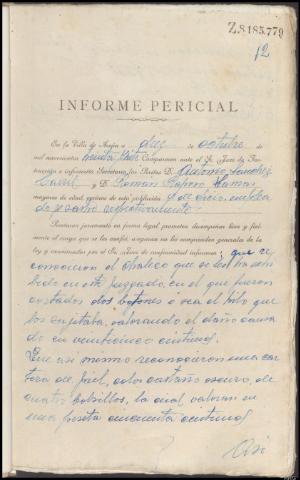 Z.8185.779
12
INFORME PERICIAL
En la Villa de a diez de octubre de
mil novecientos treinta Comparecen ante el Sr. Juez de
e infrascrito Secretario, los Peritos D. Antonio Sanchez
y D. Roman
mayores de edad, vecinos de esta población
respectivamente.
Prestaron juramento en forma legal prometen desempeñar bien y fiel-
mente el cargo que se les confía, aseguran no les comprenden generales de la
ley y examinados por el Sr. Juez de conformidad informan: que re
conocieron el chaleco que se les ha exhi
bido en este juzgado, en el que fueron
cortados dos botones o sea el hilo que
los sujetaba, valorando el daño causa
do en veinticinco centimos.
Que asi mismo reconocieron una car
tera de piel, color castaño oscuro, de
cuatro bolsillos, la cual valoran en
una peseta cincuenta centimos
Asi